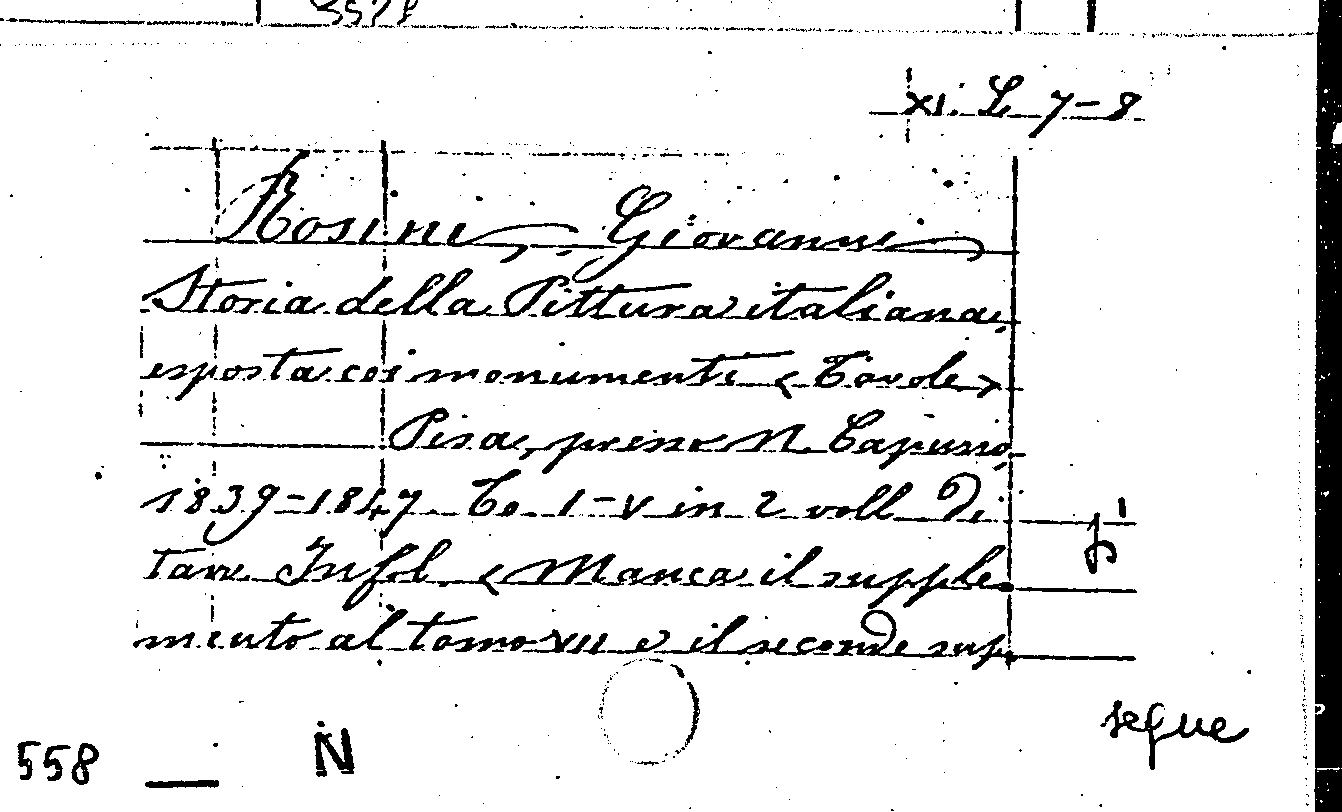 3528
XI. L. 7-8
Rosini, Giovanni
Storia della Pittura italiana,
esposta coi monumenti <Tavole>
Pisa, presso N. Capurro,
1839-1847. To. I-V in 2 voll. Di
tav. In fol. <Manca il supple-
mento al tomo VII e il secondo sup-
segue
558 N